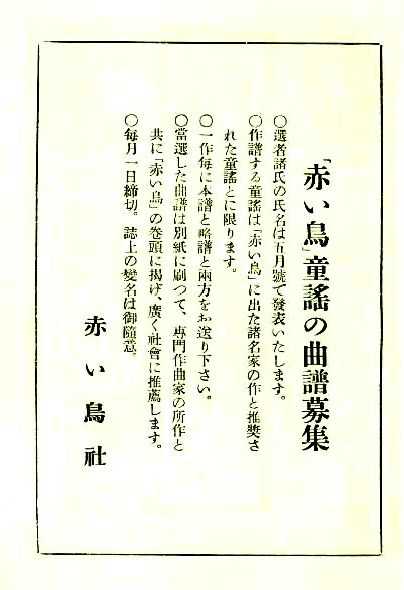 「赤い鳥」童謠の曲譜募集
〇選者諸氏の氏名は五月號で發表いたします。
〇作譜する童謠は「赤い鳥」に出た諸名家の作と推奬さ
れた童謠とに限ります。
〇一作每に本譜と略譜と兩方をお送り下さい。
〇當選した曲譜は別紙に刷つて、專門作曲家の所作と
共に「赤い鳥」の卷頭に揭げ、廣く社會に推薦します。
〇每月一日締切。誌上の變名は御隨意。
赤い鳥社